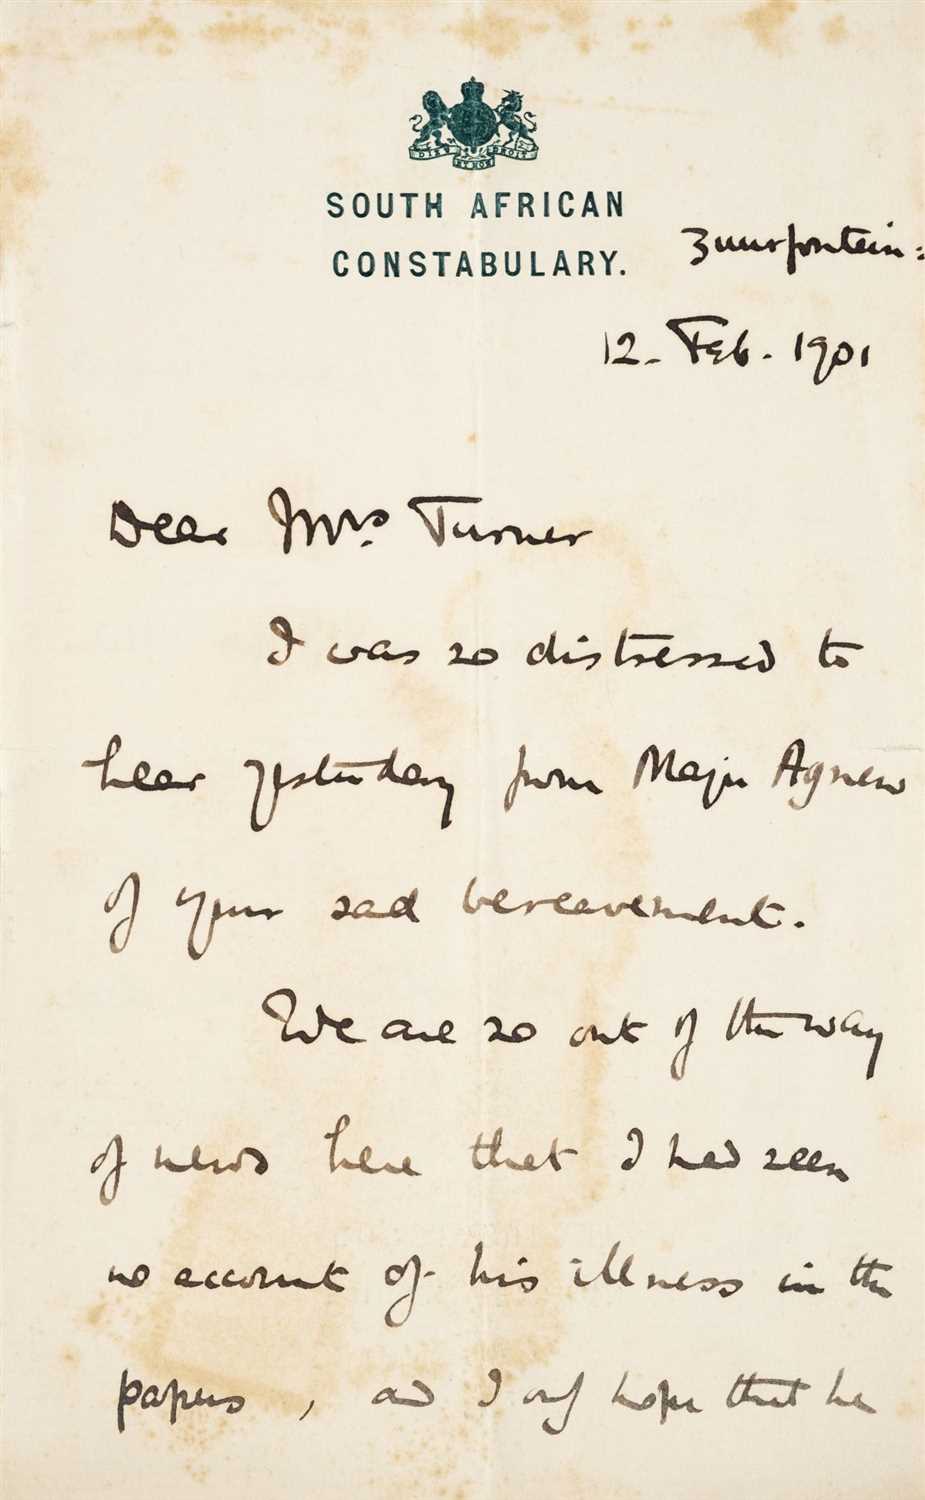 DIEU ET MON DROIT
SOUTH AFRICAN
CONSTABULARY.
Zuurfontein:
12. Feb. 1901
Dear Mrs. Turner
I was so distressed to
hear yesterday from Major Agnew
of your sad bereavement.
We are so out of the way
of news here that I had seen
no account of his illness in the
papers, and I only hope that he